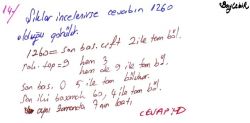 Soykenik
14/ Şıklar incelenirse cevabın 1260
olduğu görülür.
1260 = son bas. çift 2 ile tam böl.
rak. top = 9 hem 3
hem de 9 ile tam böl.
son bas. 0 5 ile tam bölünür.
Son iki basamak 60, 4 ile tam böl.
aynı zamanda 7 nin katı
CEVAP: D